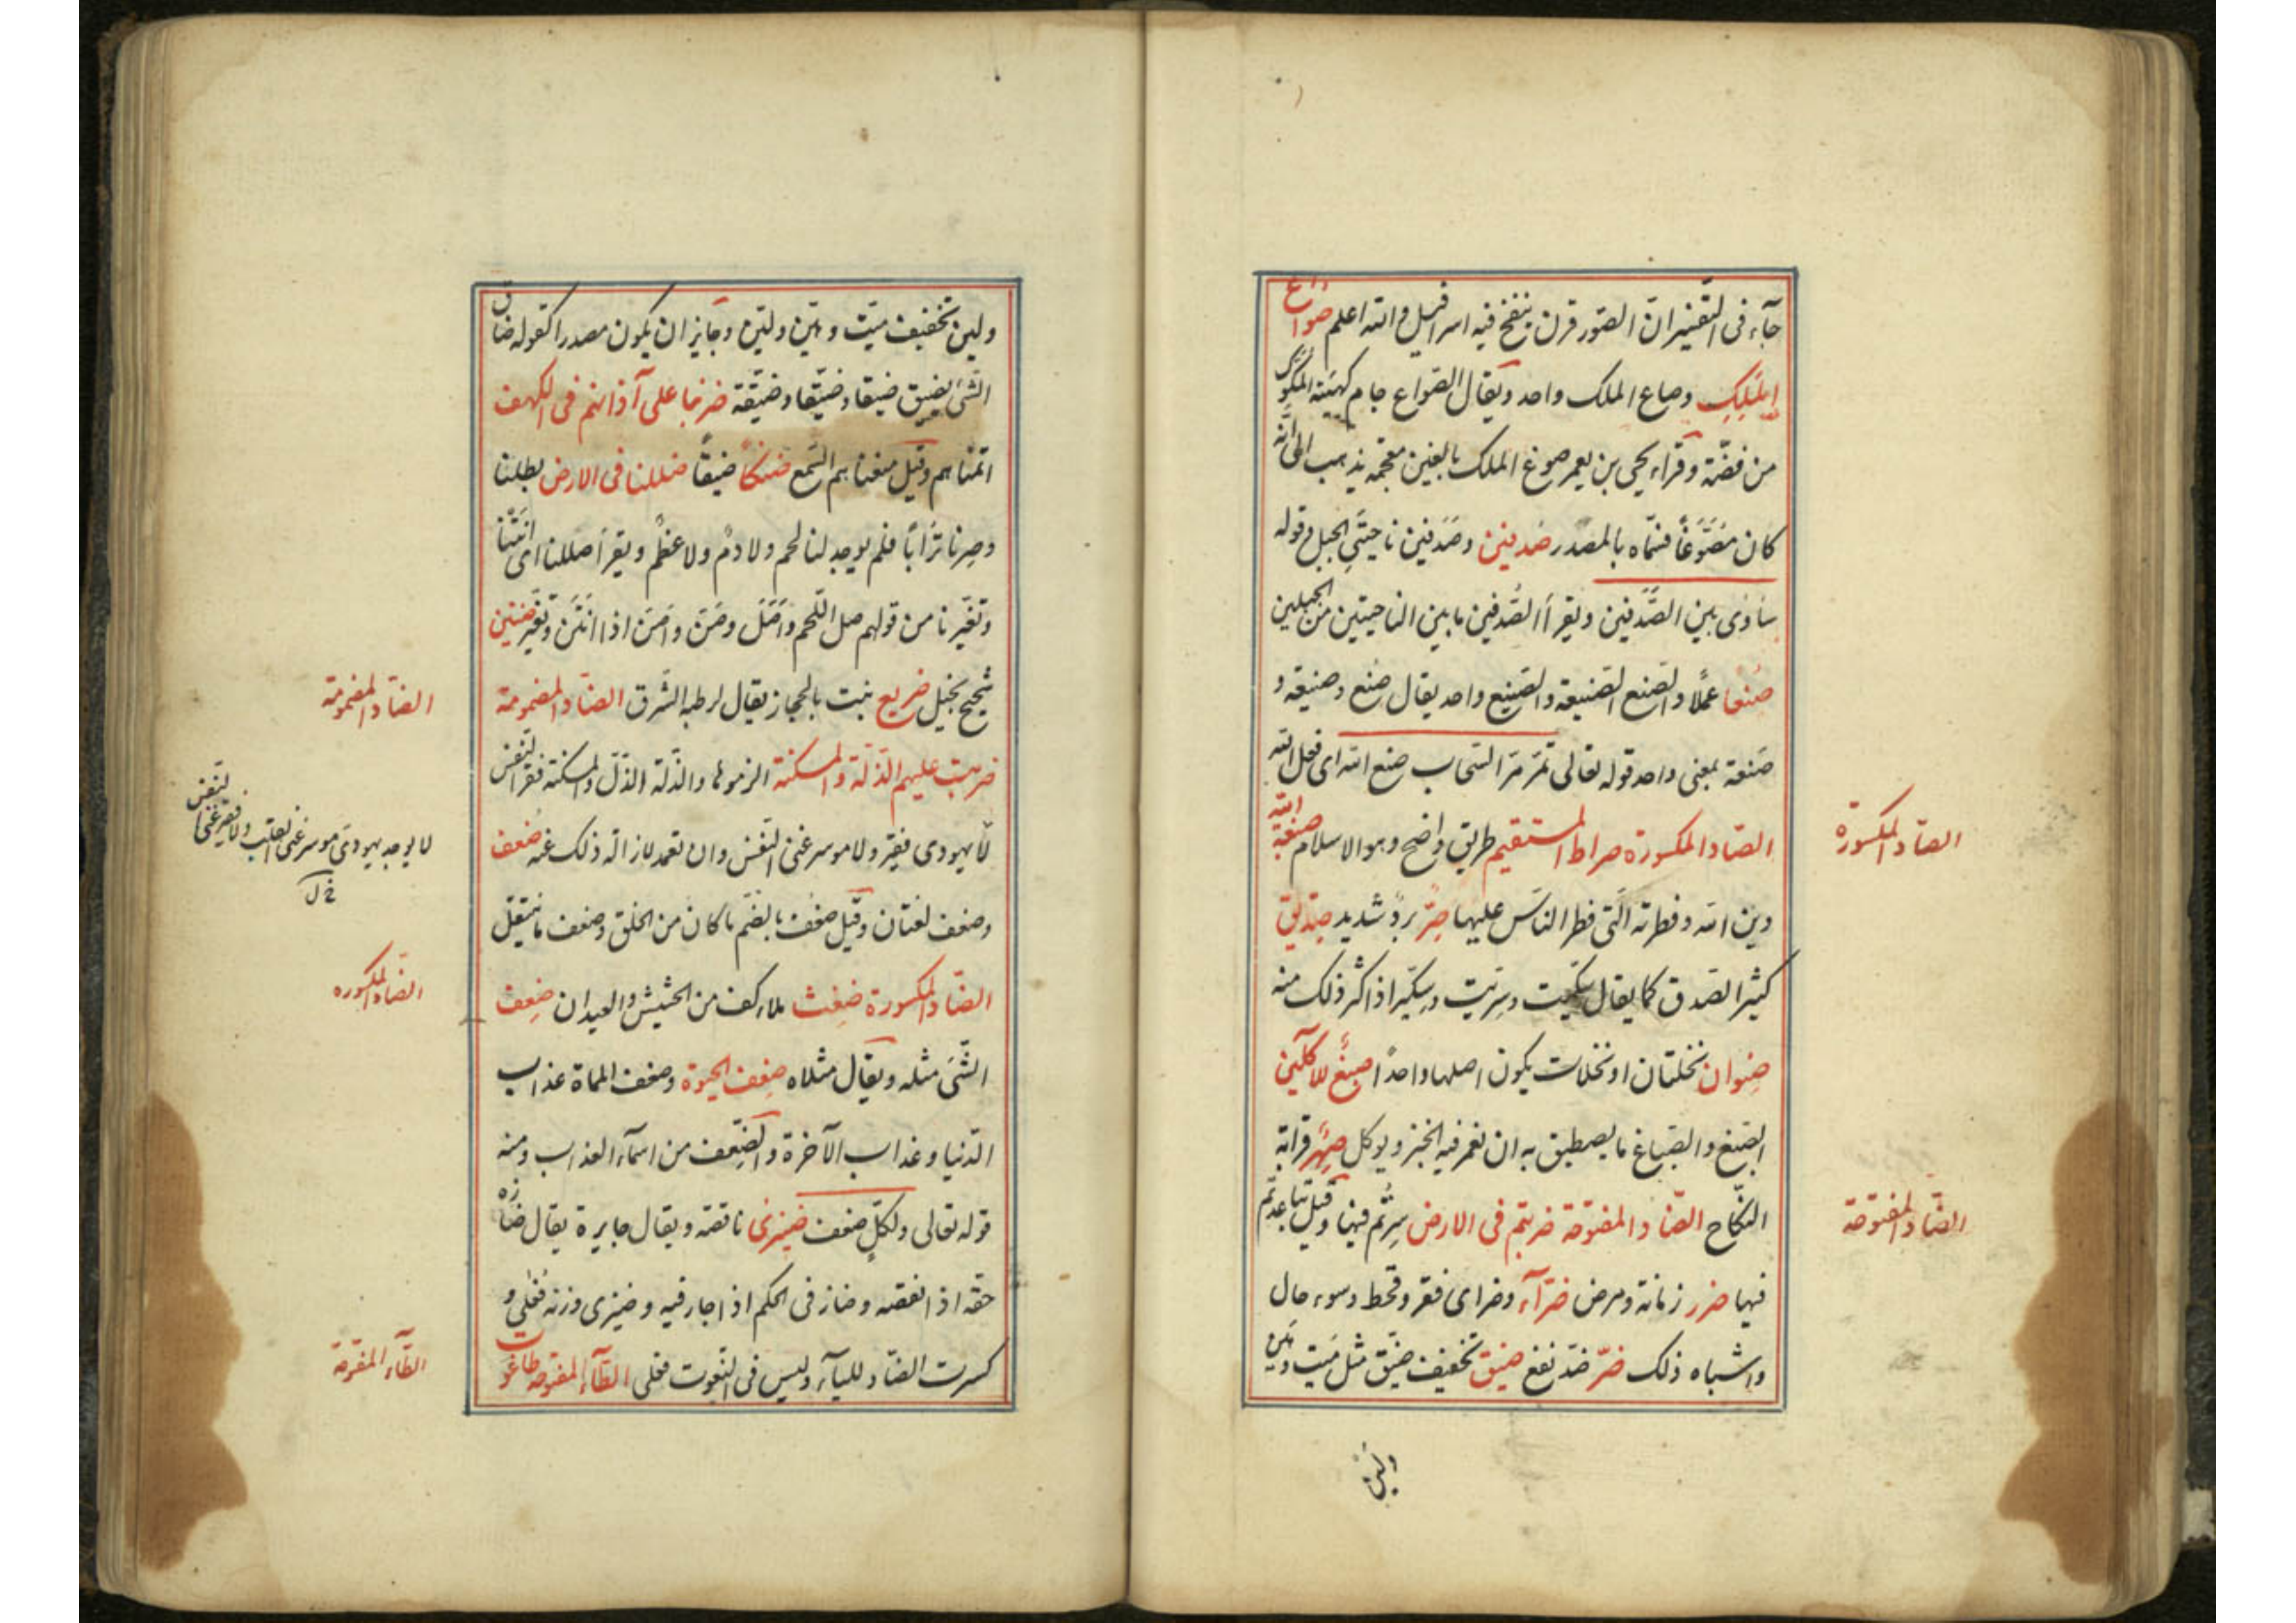 جآء فى التّفسير انّ الصّور قرن ينفخ فيه اسرافيل والله اعلم صواع
الملك وصاع الملك واحد ويقال الصّواع جام كهيئة المكّوك
من فضّة وقرأ يحيى بن يعمر صوغ الملك بالغين معجمة يذهب الى انّه
كان مَصُوغًا فسمّاه بالمصدر صدفين وصدفين ناحيتى الجبل وقوله
ساوى بين الصّدفين ويقرأ الصُّدفين مابين الناحيتين من الجبلين
صنعا عملًا والصنع الصنيعة والصنيع واحد يقال صنع وصنيعة و
صنعة بمعنى واحد قوله تعالى تمرّ مرّ السّحاب صنع الله اى فعل الله
الصّاد المكسورة صراط المستقيم طريق واضح وهو الاسلام صبغة الله
الصّاد المكسورة
دين الله وفطرته الّتى فطر الناس عليها صِرّ بردٌ شديد صدّيق
كثير الصّدق كما يقال سكّيت وشرّيب وسكّير اذا كثر ذلك منه
صنوان نخلتان او نخلات يكون اصلها واحدًا صبغ للاكلين
الصبغ والصّباغ ما يصطبغ به ان تغمر فيه الخبز ويوكل صهر قرابة
النّكاح الضّاد المفتوحة ضربتم فى الارض سِرتُم فيها وقيل تباعدتم
الضّاد المفتوحة
فيها ضرر زمانة ومرض ضرّآء وضر اى فقر وقحط وسوء حال
واشباه ذلك ضرّ ضدّ نفع ضيق تخفيف ضيّق مثل ميت وهين
ولين
ولين تخفيف ميّت وهيّن وليّن وجايز ان يكون مصدرا كقوله ضاق
الشّئ يضيق ضيقا وضيّقا وضيّقة ضربنا على آذانهم فى الكهف
انمناهم وقيل منعناهم السّمع ضنكًا ضيقًا ضللنا فى الارض بطلنا
وصرنا ترابًا فلم يوجد لنا لحم ولا دم ولا عظم ويقرأ صللنا اى انتنّا
وتغيّرنا من قولهم صل اللّحم واصلّ وصنّ واصنّ اذا انتن وتغيّر ضنين
شحيح بخيل ضريع نبت بالحجاز يقال لرطبه الشّرق الضّاد المضمومة
الضّاد المضمومة
ضربت عليهم الذّلّة والمسكنة الزموها والذّلة الذّلّ والمسكنة فقر النّفس
لا يهودى فقير ولا موسر غنىّ النّفس وان تعمد لازالة ذلك عنه ضعف
لا يوجد يهودى موسر غنى القلب ولا فقير غنى النّفس
خ ل
وضعف لغتان وقيل ضعف بالضّم ما كان من الخلق وضعف ما ينتقل
الضّاد المكسورة ضغث ملء كف من الحشيش والعيدان ضعف
الضّاد المكسوره
الشّئ مثله ويقال مثلاه ضعف الحيوة وضعف المماة عذاب
الدّنيا وعذاب الآخرة والضّعف من اسمآء العذاب ومنه
قوله تعالى ولكلٍّ ضعف ضيزى ناقصة ويقال جايرة يقال ضازه
حقه اذا نقصه وضاز فى الحكم اذا جار فيه وضيزى وزنه فُعْلى و
كسرت الضّاد لليآء وليس فى النّعوت فعلى الطّآء المفتوحة طاغوت
الطّاء المفتوحة